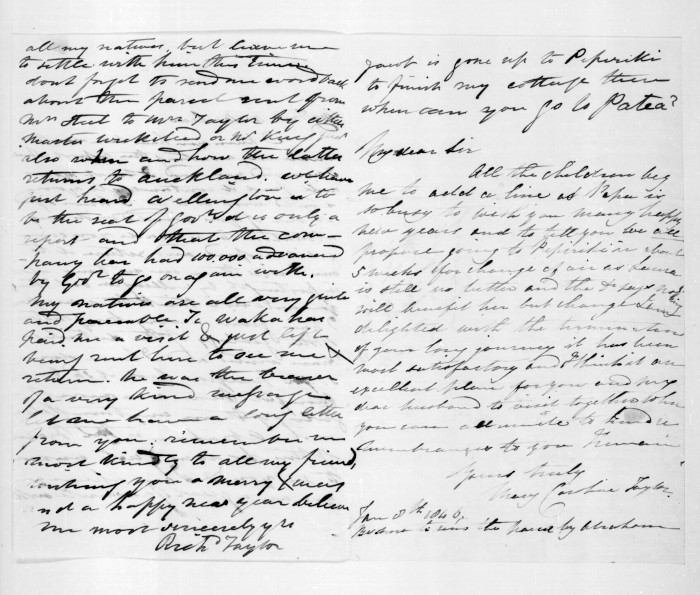 all my natives, but leave me
to settle with him this time
dont forget to send me word back
about the parcel sent from
Mrs to Mrs Taylor by either
Master or Mr King
also when and how the latter
returns to Auckland. we have
just heard Wellington is to
be the seat of Govt. it is only a
report and that the com-
pany has had 100,000 advanced
by Govt to go on again with.
My natives are all very quiet
and peaceable Te waka has
paid me a visit & just left
being sent here to see me
return. he was the bearer
of a very kind message
let me have a long letter
from you. remember me
most kindly to all my friends
wishing you a merry Xmas
and a happy new year believe
me most sincerely yrs
Richd Taylor
Jacob is gone up to Pipiriki
to finish my cottage there
when can you go to Patea?
My dear Sir
All the children beg
me to add a line as Papa is
so busy to wish you many happy
new years and to tell you we all
propose going to Pipiriki in about
5 weeks for change of air as Laura
is still no better and the Dr says
will benefit her but change I am
delighted with the termination
of your long journey it has been
most satisfactory and I think it an
excellent plan for you and my
dear husband to visit together when
you can all unite in kind re
membrances to you I remain
Yours truly
Mary Caroline Taylor
Jan 8th 1846
by Abraham